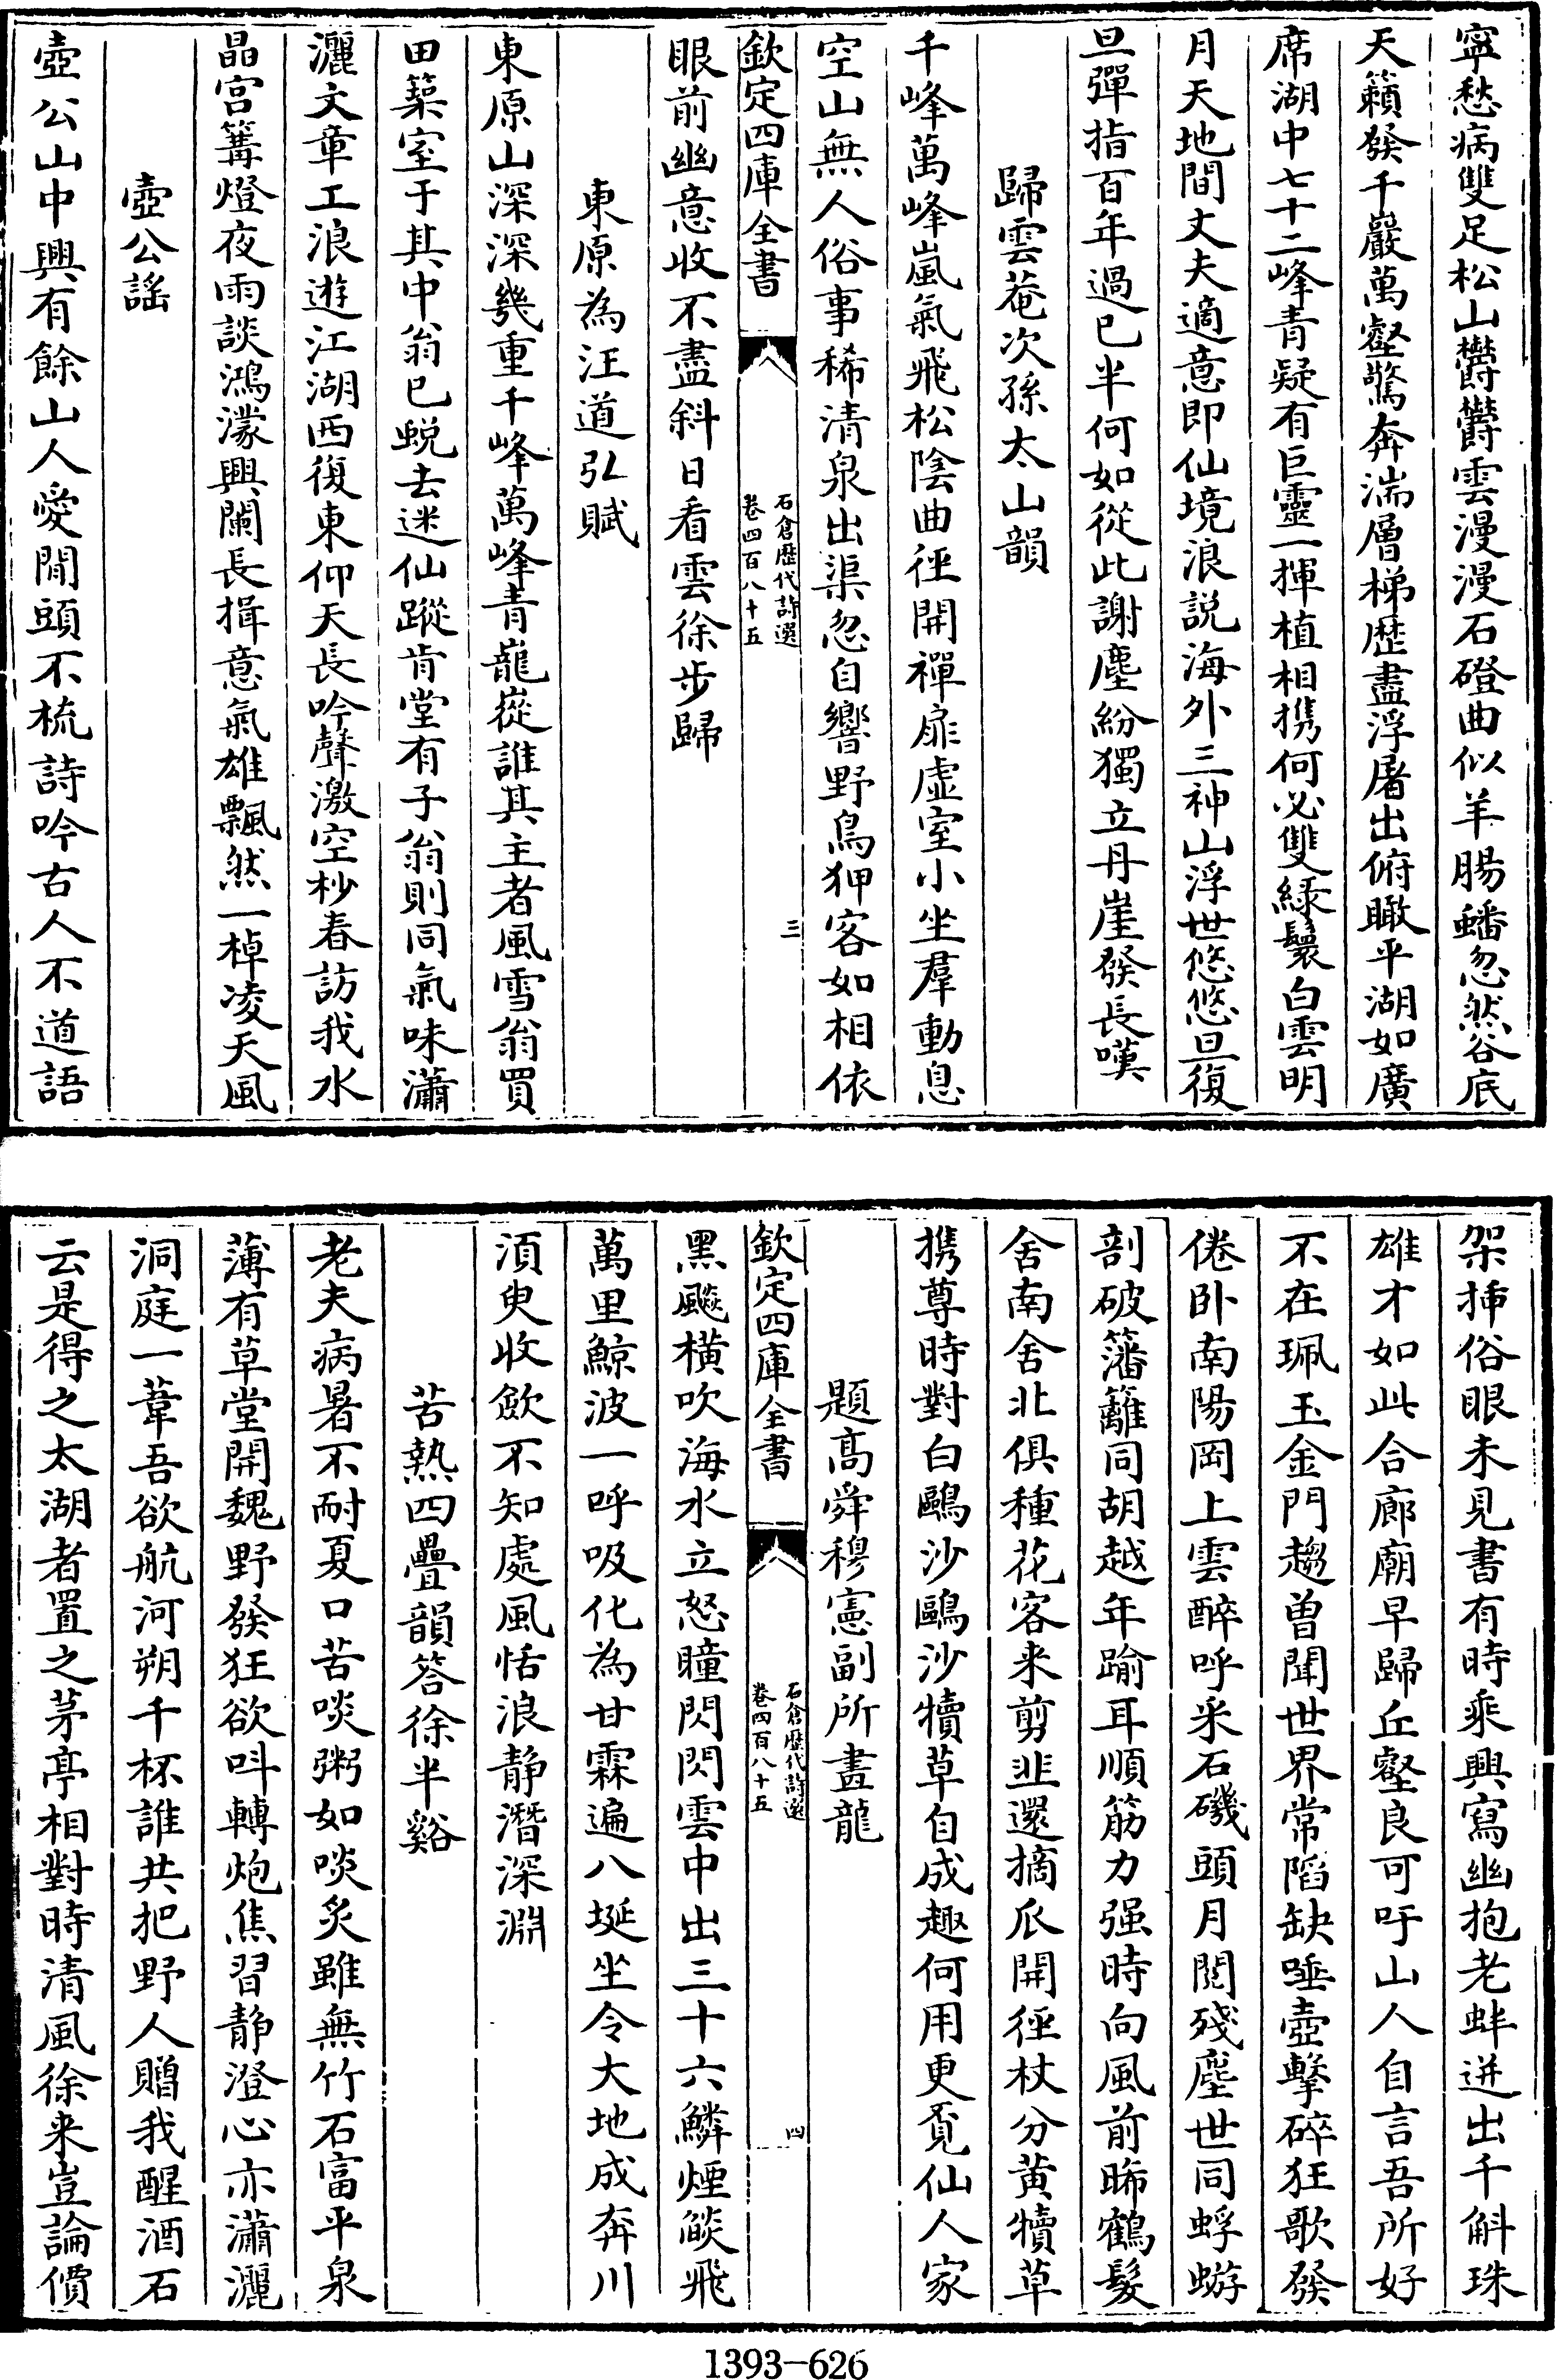 寜愁病雙足松山欝欝雲漫漫石磴曲似羊腸蟠忽然谷底
天籟發千巖萬壑驚奔湍層梯歴盡浮屠出俯瞰平湖如廣
席湖中七十二峰青疑有巨靈一揮植相攜何必雙綠鬟白雲明
月天地間丈夫適意即仙境浪説海外三神山浮世悠悠旦復
旦彈指百年過已半何如從此謝塵紛獨立丹崖發長嘆
歸雲菴次孫太山韻
千峰萬峰嵐氣飛松陰曲徑開禪扉虛室小坐羣動息
空山無人俗事稀清泉出渠忽自響野鳥狎客如相依
欽定四庫全書
石倉歴代詩選
卷四百八十五
三
眼前幽意收不盡斜日看雲徐步歸
東原為汪道弘賦
東原山深深幾重千峰萬峰青巃嵸誰其主者風雪翁買
田築室于其中翁已蜕去迷仙蹤肯堂有子翁則同氣味瀟
灑文章工浪遊江湖西復東仰天長吟聲激空杪春訪我水
晶宫篝燈夜雨談鴻濛興闌長揖意氣雄飄然一棹凌天風
壺公謡
壺公山中興有餘山人愛閒頭不梳詩吟古人不道語
架揷俗眼未見書有時乘興寫幽抱老蚌迸出千斛珠
雄才如此合廊廟早歸丘壑良可吁山人自言吾所好
不在珮玉金門趨曾聞世界常䧟缺唾壺擊碎狂歌發
倦卧南陽岡上雲醉呼采石磯頭月閲殘塵世同蜉蝣
剖破籓籬同胡越年踰耳順筋力强時向風前晞鶴髮
舍南舍北俱種花客來剪韭還摘𤓰開徑杖分黄犢草
攜尊時對白鷗沙鷗沙犢草自成趣何用更覓仙人家
題髙舜穆憲副所畫龍
欽定四庫全書
石倉歴代詩選
卷四百八十五
四
黑飈橫吹海水立怒瞳閃閃雲中出三十六鱗煙燄飛
萬里鯨波一呼吸化為甘霖遍八埏坐令大地成奔川
須臾收歛不知處風恬浪静潛深淵
苦熱四疊韻答徐半谿
老夫病暑不耐夏口苦啖粥如啖炙雖無竹石富平泉
薄有草堂開魏野發狂欲呌轉炮焦習静澄心亦瀟灑
洞庭一葦吾欲航河朔千杯誰共把野人贈我醒酒石
云是得之太湖者置之茅亭相對時清風徐來豈論價
1393-626